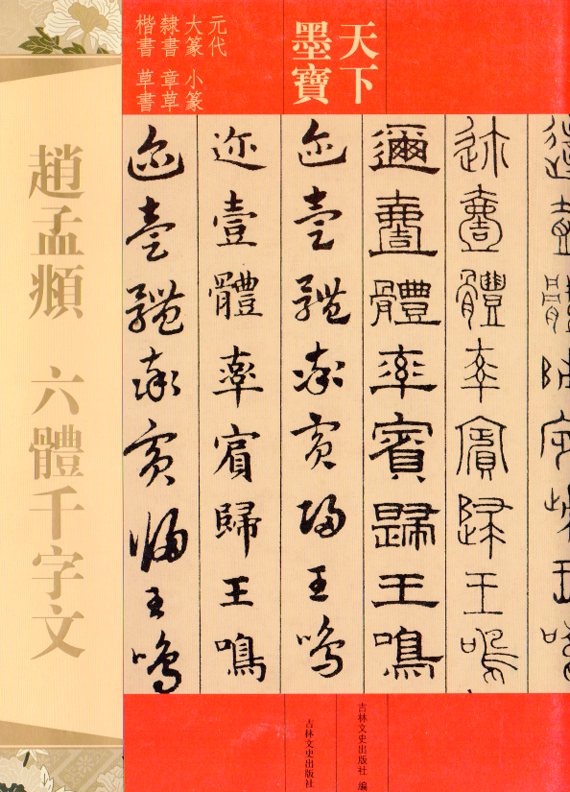 天下
墨寶
元代
大篆 小篆
隸書 章草
楷書 草書
迩壹體率賓歸王鳴
邇壹體率賓歸王鳴
迩壹體率賓歸王鳴
迩壹體率賔歸王鳴
迩壹體率賓歸王鳴
趙孟頫 六體千字文
吉林文史出版社 編
吉林文史出版社